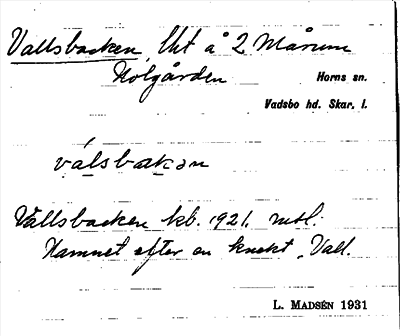 Vallsbacken, lht å 2 Mårum
Holgården Horns sn.
Vadsbo hd. Skar. l.
válsbakən
Vallsbacken kb. 1921. mtl.
Namnet efter en knekt, Vall.
L. MADSÉN 1931